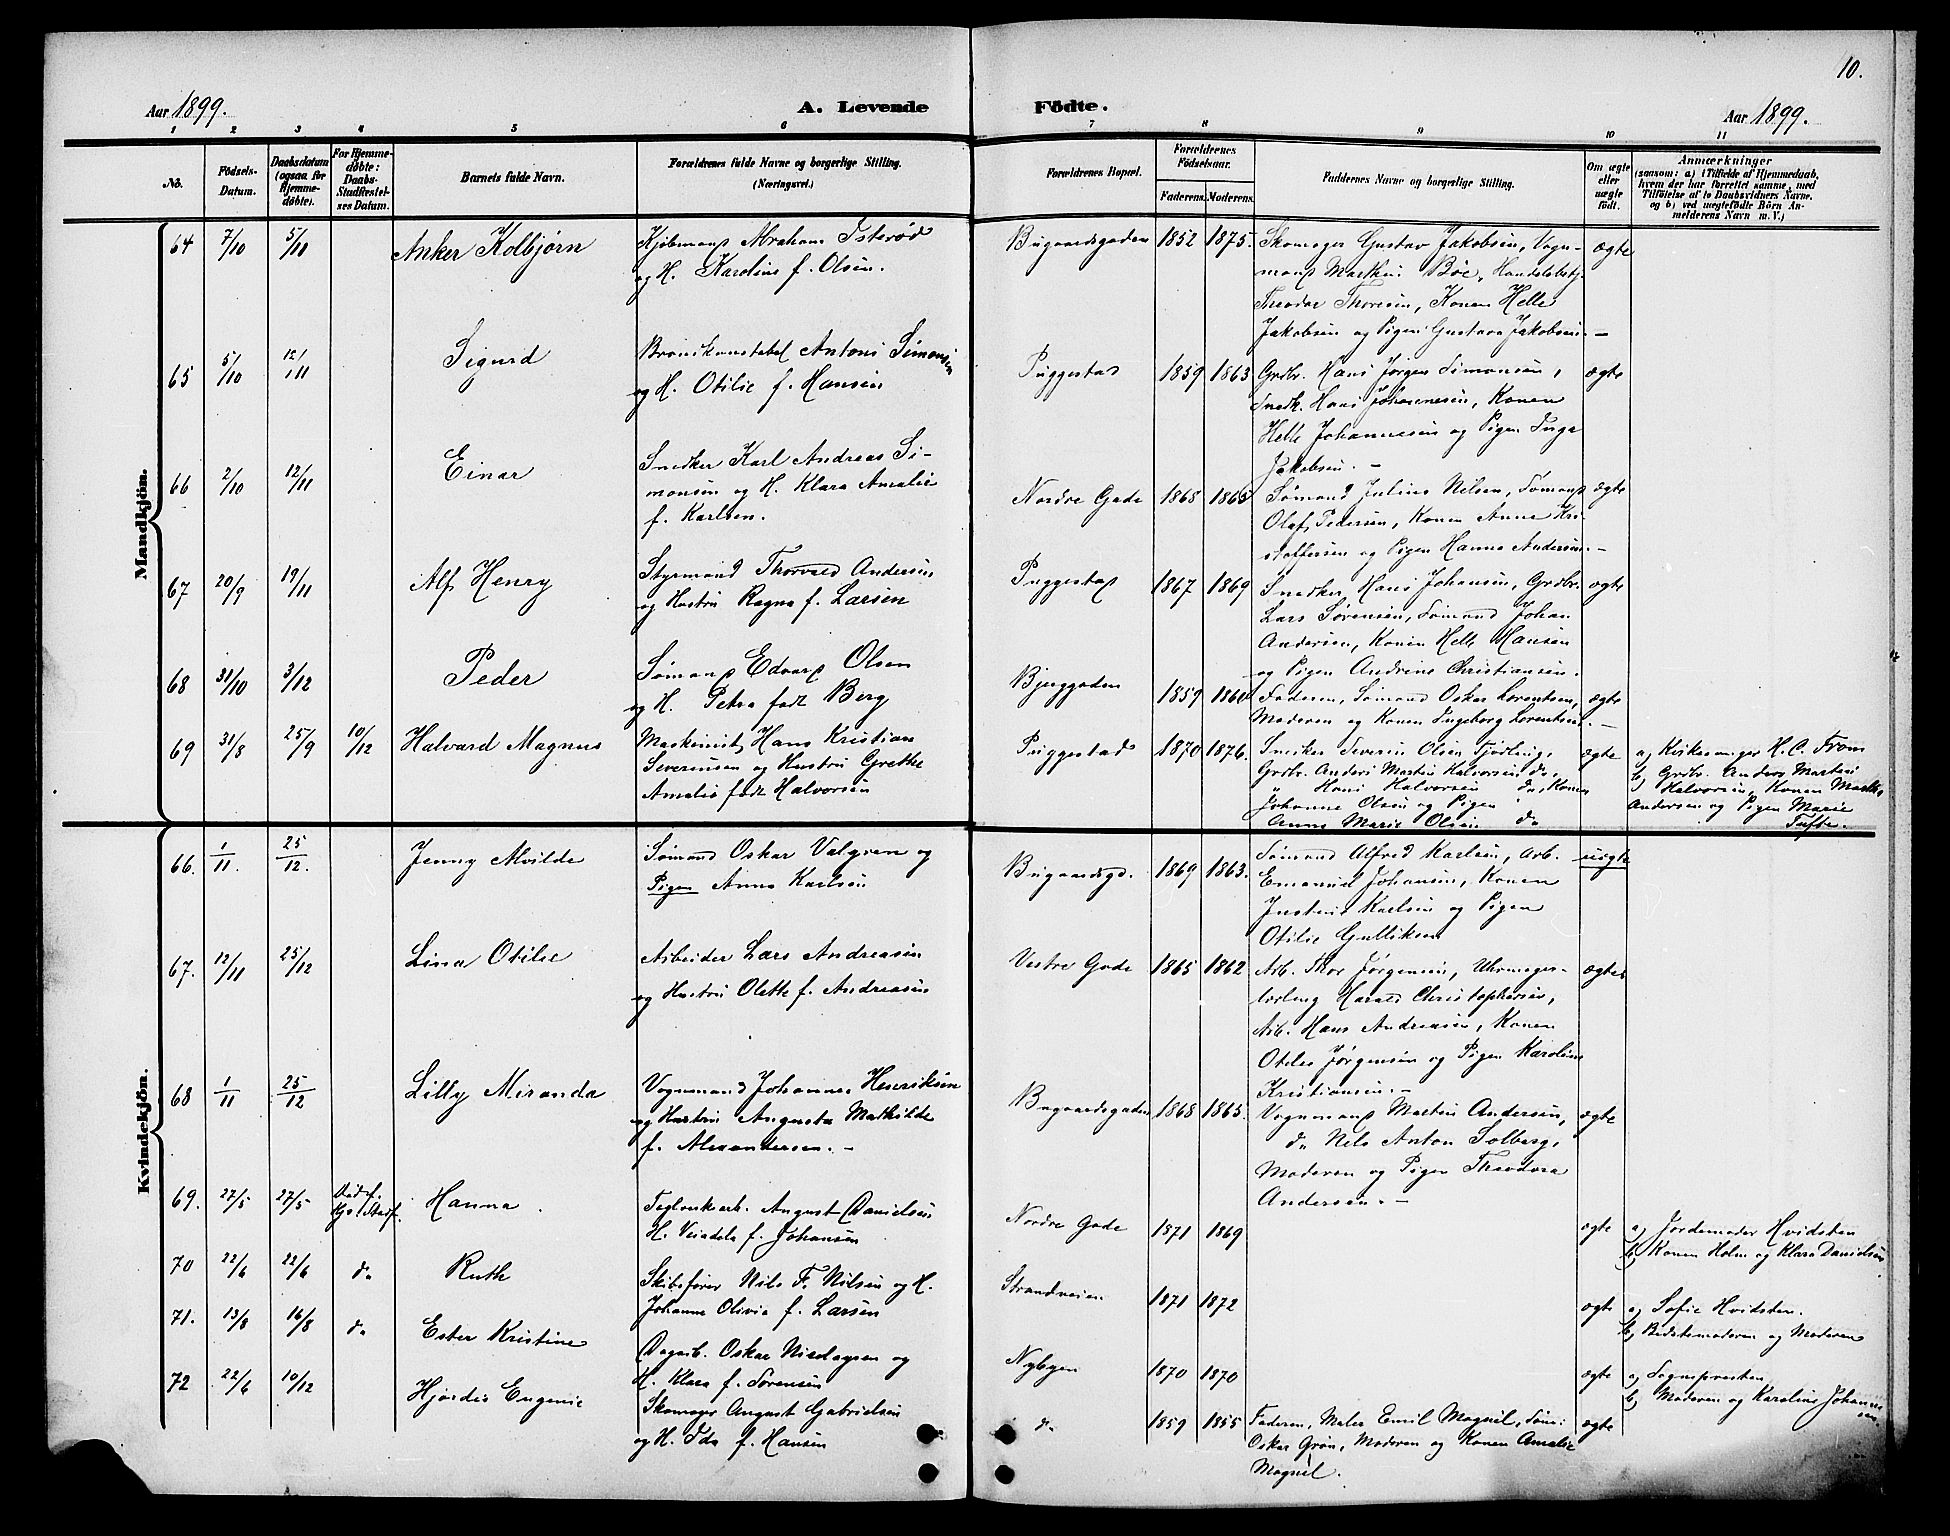 10.
Aar 1899. A. Levende Födte. Aar 1899.
1 2 3 4 5 6 7 8 9 10 11
No.
Födsels-
Datum.
Daabsdatum
(ogsaa for
Hjemme-
döbte).
For Hjemme-
döbte:
Daabs-
Stadfæstel-
ses Datum.
Barnets fulde Navn.
Forældrenes fulde Navne og borgerlige Stilling.
(Næringsvei.)
Forældrenes Bopæl.
Forældrenes
Födselsaar.
Faderens. Moderens.
Faddernes Navne og borgerlige Stilling.
Om ægte
eller
uægte
födt.
Anmærkninger
(saasom: a) i Tilfælde af Hjemmedaab,
hvem der har forrettet samme, med
Tilföielse af to Daabsvidners Navne,
og b) ved uægtefödte Börn An-
melderens Navn m. V.)
Mandkjön.
64 7/10 5/11 Anker Kolbjørn
Kjöbmand Abraham Isterød
og H. Karoline f. Olsen.
Bugaardsgaden 1852 1875.
Skomager Gustav Jakobsen, Vogn-
mand Markus Bøe, Handelsbetj.
Theodor Thoresen, Konen Helle
Jakobsen og Pigen Gustava Jakobsen. –
ægte
65 5/10 12/11 Sigurd
Brandkonstabel Anton Simonsen
og H. Otilie f. Hansen
Puggestad 1859 1863
Grdbr. Hans Jørgen Simonsen,
Snedk. Hans Johannesen, Konen
Helle Johannesen og Pigen Inga
Jakobsen. –
ægte
66 2/10 12/11 Einar
Snedker Karl Andreas Si-
monsen og H. Klara Amalie
f. Karlsen.
Nordre Gade 1868 1865
Sømand Julius Nilsen, Sømand
Olaf Pedersen, Konen Anne Kri-
stoffersen og Pigen Hanna Andersen. –
ægte
67 20/9 19/11 Alf Henry
Styrmand Thorvald Andersen
og Hustru Ragna f. Larsen
Puggestad 1867 1869
Snedker Hans Johansen, Grdbr.
Lars Sørensen, Sømand Johan
Andersen, Konen Helle Hansen
og Pigen Andrine Christiansen.
ægte
68 31/10 3/12 Peder
Sømand Edvard Olsen
og H. Petra født Berg
Bjerggaden 1859 1860
Faderen, Sømand Oskar Lorentsen,
Moderen og Konen Ingeborg Lorentsen. –
ægte
69 31/8 25/9 10/12 Halvard Magnus
Maskinist Hans Kristian
Severinsen og Hustru Grethe
Amalie født Halvorsen
Puggestad 1870 1876.
Snedker Severin Olsen Tjødling,
Grdbr. Anders Martin Halvorsen do,
" Hans Halvorsen do, Konen
Johanne Olsen og Pigen
Anne Marie Olsen do
ægte
a) Kirkesanger H. C. From
b) Grdbr. Anders Martin
Halvorsen, Konen Marthe
Andersen og Pigen Marie
Tufte.
Kvindekjön.
66. 1/11. 25/12. Jenny Alvilde
Sømand Oskar Valgren og
Pigen Anna Karlsen
Bugaardsgd. 1869 1863.
Sømand Alfred Karlsen, Arb.
Emanuel Johansen, Konen
Justine Karlsen og Pigen
Otilie Gulliksen
uægte
67. 12/11 25/12 Lina Otilie
Arbeider Lars Andreasen
og Hustru Olette f. Andreasen
Vestre Gade 1865 1862
Arb. Thor Jørgensen, Uhrmager-
lærling Harald Christophersen,
Arb. Hans Andreasen, Konen
Otilie Jørgensen og Pigen Karoline
Kristiansen. –
ægte
68 1/11 25/12 Lilly Miranda
Vognmand Johannes Henriksen
og Hustru Augusta Mathilde
f. Alexandersen. –
Bugaardsgaden 1868 1865.
Vognmand Martin Andersen,
do Nils Anton Solberg,
Moderen og Pigen Theodora
Andersen. –
ægte
69. 27/5 27/5 Hanna.
Teglverkarb. August Danielsen
H. f. Johansen
Nordre Gade 1871 1869
ægte
a) Jordemoder Hvidsten
b) Konen Holm og Klara Danielsen
70 22/6 22/6 do Ruth
Skibsfører Nils F. Nilsen og H.
Johanne Olivia f. Larsen
Strandveien 1871 1872
ægte
a) Sofie Hvidsten.
b) Bedstemoderen og Moderen
71. 13/8 16/8 do Ester Kristine
Dagarb. Oskar Nicolaysen og
H. Klara f. Sørensen
Nybyen 1870 1870
ægte
a) Sognepresten
b) Moderen og Karoline Johannesen.
72 22/6 10/12 Hjørdis Eugenie
Skomager August Gabrielsen
og H. Ida f. Hansen
do 1859 1855
Faderen, Maler Emil Magnil, Søm:
Oskar Grøn, Moderen og Konen Amalie
Magnil.
ægte